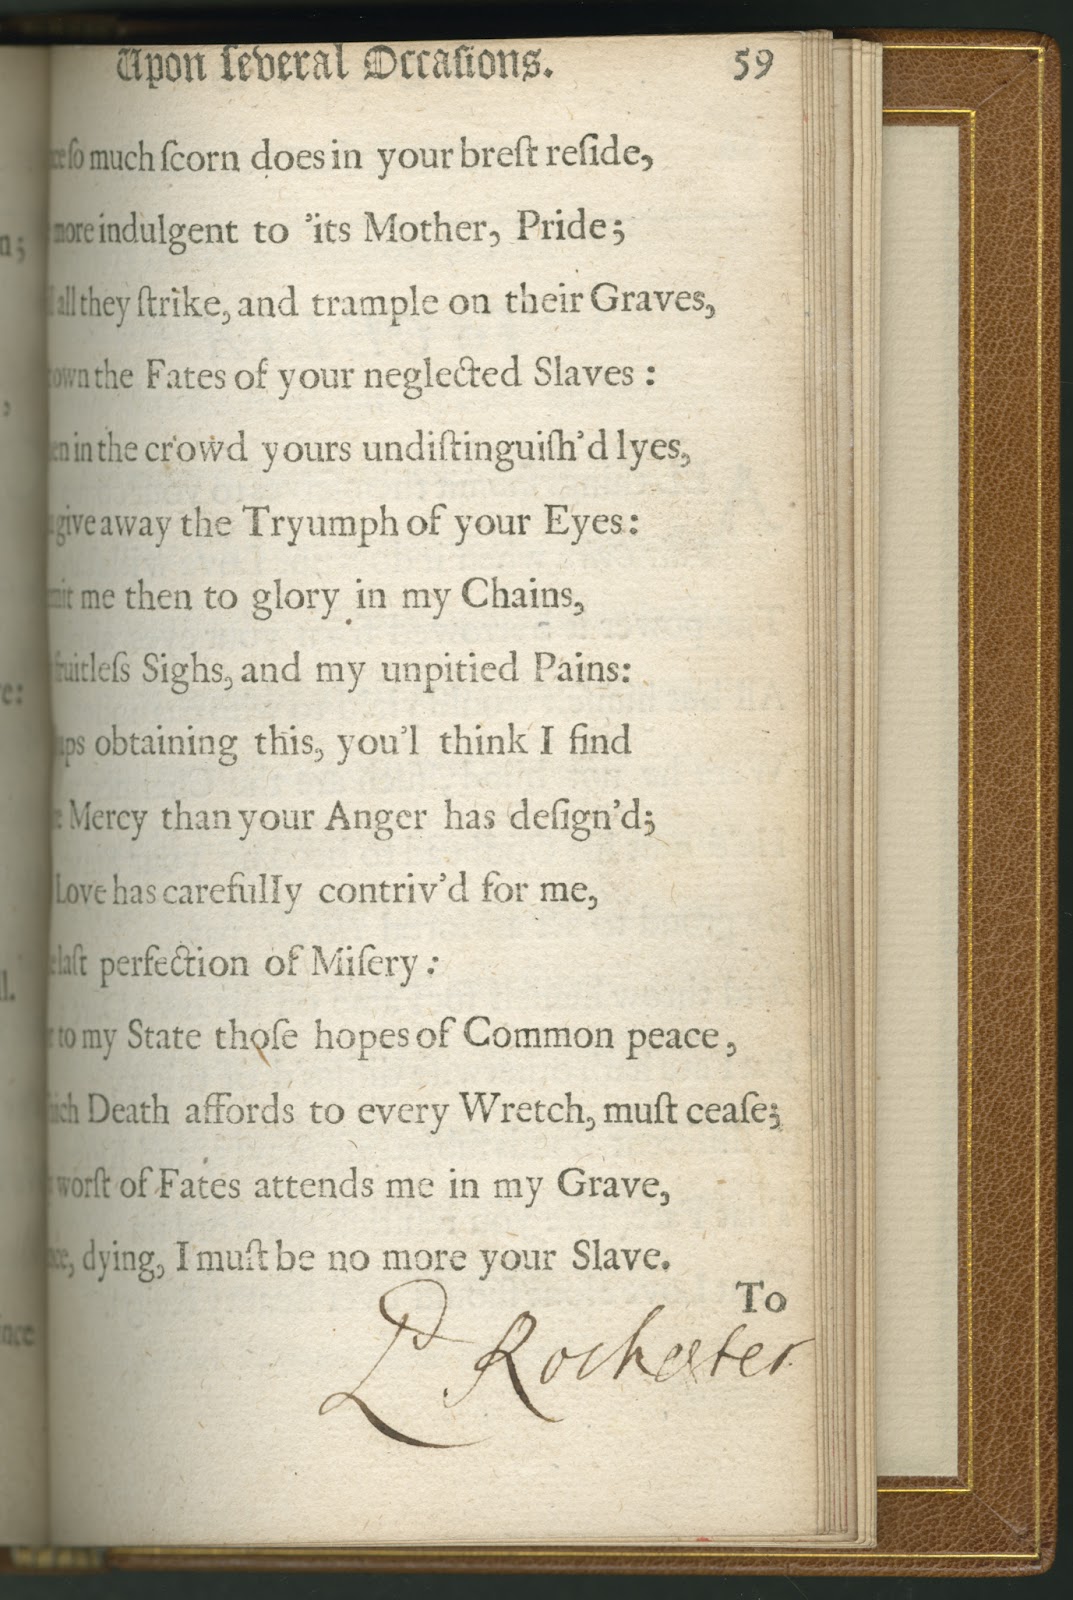 Upon ſeveral Occaſions. 59
ſo much ſcorn does in your breſt reſide,
more indulgent to 'its Mother, Pride;
all they ſtrike, and trample on their Graves,
own the Fates of your neglected Slaves :
in the crowd yours undiſtinguiſh'd lyes,
give away the Tryumph of your Eyes :
me then to glory in my Chains,
fruitleſs Sighs, and my unpitied Pains:
obtaining this, you'l think I find
Mercy than your Anger has deſign'd;
Love has carefully contriv'd for me,
laſt perfection of Miſery :
to my State thoſe hopes of Common peace,
Death affords to every Wretch, muſt ceaſe;
worſt of Fates attends me in my Grave,
dying, I muſt be no more your Slave.
To
Ld Rochester
n;
,
re:
ll.
ince